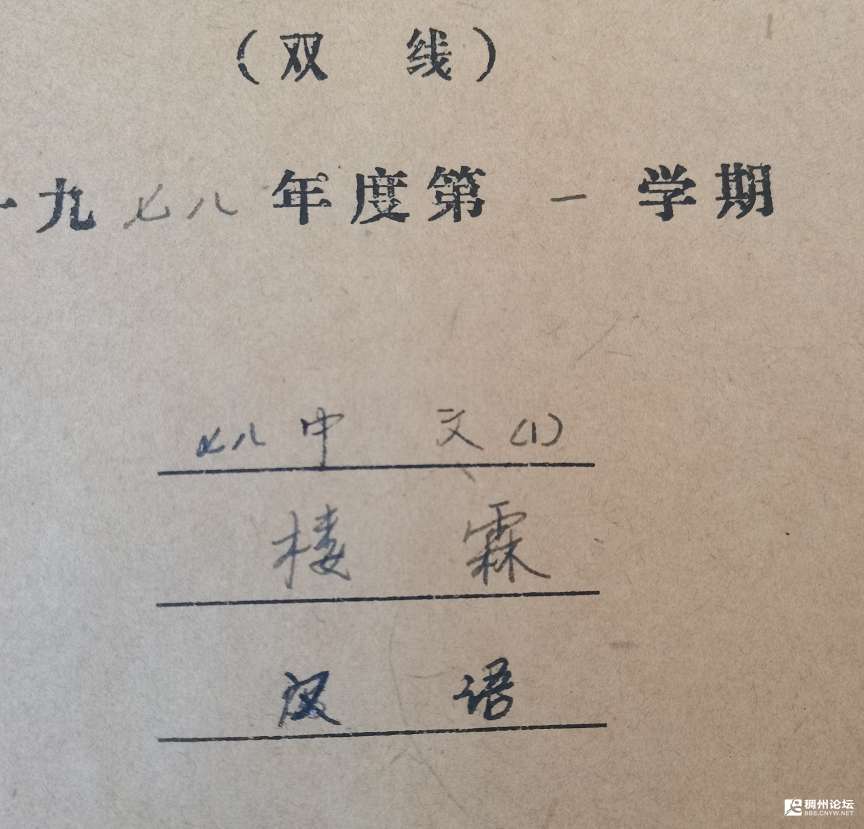 （双 线）
一九七八年度第一学期
七八中 文(1)
楼 霖
汉 语
稠州论坛
BBS.CNYW.NET